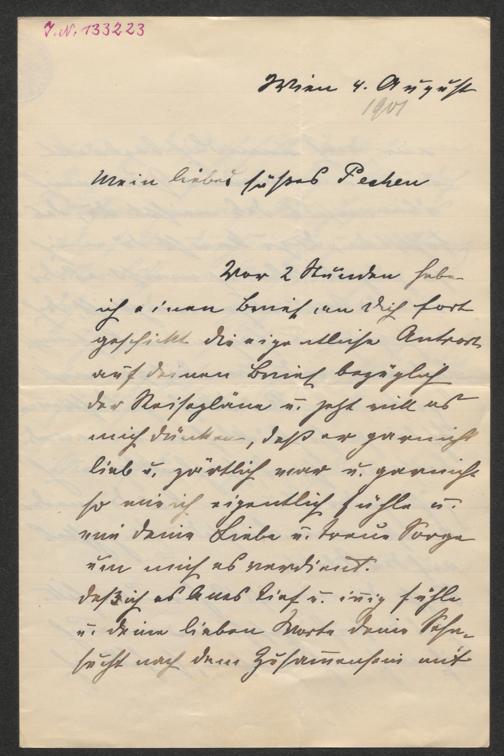 J.N. 133223
Wien 4. August
1901
Mein liebes süßes Pechen
Vor 2 Stunden habe
ich einen Brief an Dich fort
geschikt die eigentliche Antwort
auf deinen Brief bezüglich
der Reisepläne u. jetzt will es
mich dünken, daß er garnicht
lieb u. zärtlich war u. garnicht
so wie ich eigentlich fühle u.
wie deine Liebe u. treue Sorge
um mich es verdient.
Daß ich es Alles tief u. innig fühle
u. deine lieben Worte deine Sehn-
sucht nach dem Zusammensein mit